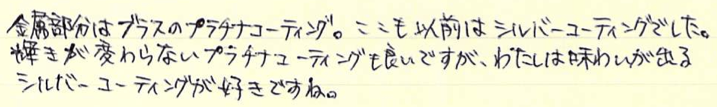 金属部分はブラスのプラチナコーティング。ここも以前はシルバーコーティングでした。
輝きが変わらないプラチナコーティングも良いですが、わたしは味わいが出る
シルバーコーティングが好きですね。